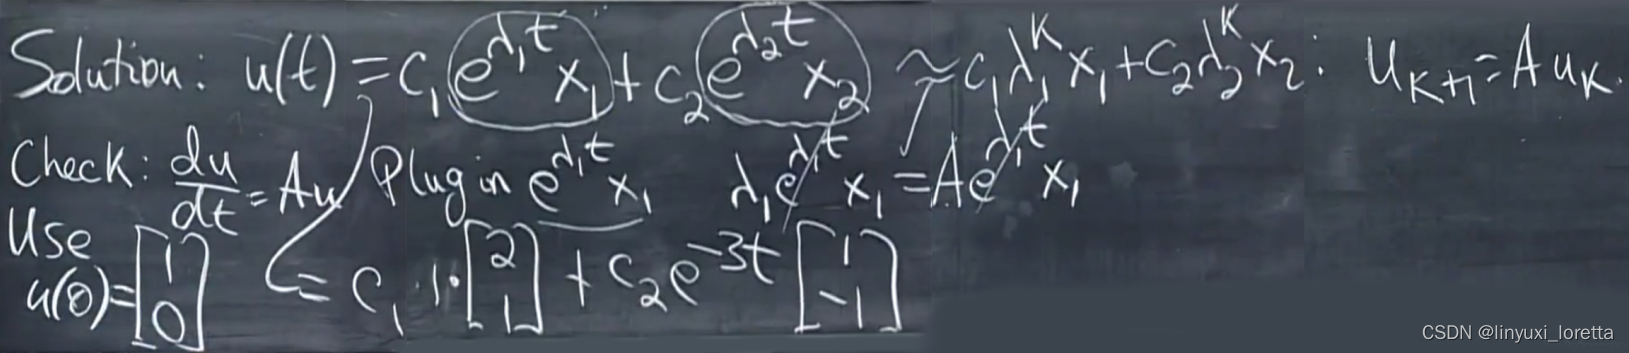 Solution: u(t) = c₁ e^{λ₁t} x₁ + c₂ e^{λ₂t} x₂ ~ c₁ λ₁^K x₁ + c₂ λ₂^K x₂ : u_{K+1} = A u_K.
Check: du/dt = Au Plug in e^{λ₁t} x₁ λ₁ e^{λ₁t} x₁ = A e^{λ₁t} x₁
Use
u(0) = [1 0] = c₁ · 1 · [2 1] + c₂ e^{-3t} [1 -1]
CSDN @linyuxi_loretta